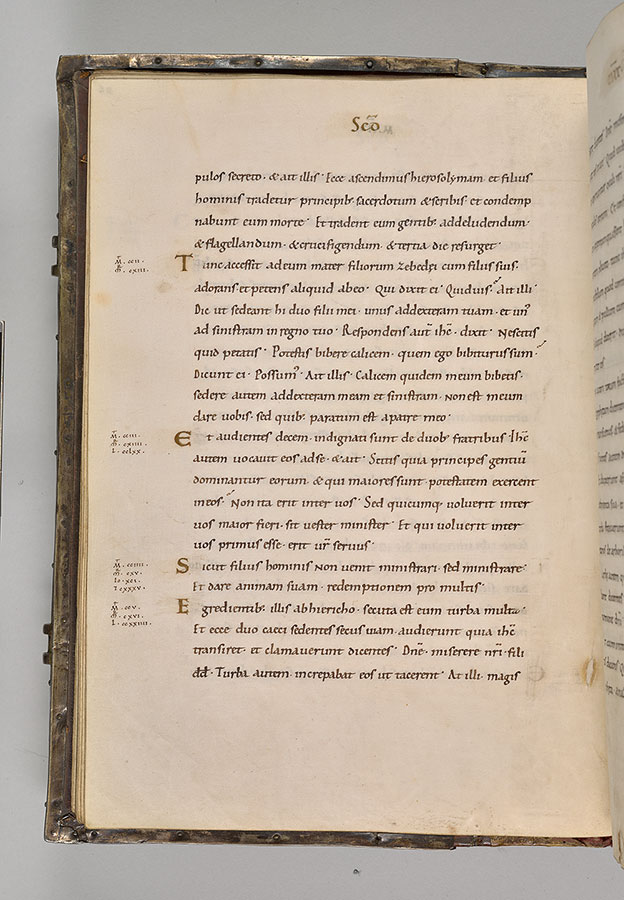 Scō
pulos secreto · & ait illis · Ecce ascendimus hierosolymam · et filius
hominis tradetur principib; sacerdotum · & scribis · et condemp
nabunt eum morte · Et tradent eum gentib; ad deludendum ·
& flagellandum · & crucifigendum · & tertia die resurget ·
Tunc accessit ad eum mater filiorum zebedęi cum filiis suis ·
adorans et petens aliquid ab eo · Qui dixit ei · Quid uis · Ait illi ·
Dic ut sedeant hi duo filii mei · unus ad dexteram tuam · et un'
ad sinistram in regno tuo · Respondens aut̄ ihc̄ · dixit · Nescitis
quid petatis · Potestis bibere calicem · quem ego bibiturus sum ·
Dicunt ei · Possum' · Ait illis · Calicem quidem meum bibetis ·
sedere autem ad dexteram meam et sinistram · non est meum
dare uobis · sed quib; paratum est a patre meo ·
Et audientes decem · indignati sunt de duob; fratribus · Ihc̄
autem uocauit eos ad se · & ait · Scitis quia principes gentiū
dominantur eorum · & qui maiores sunt · potestatem exercent
in eos · Non ita erit inter uos · Sed quicumq; uoluerit inter
uos maior fieri · sit uester minister · Et qui uoluerit inter
uos primus esse · erit ur̄ seruus ·
Sicut filius hominis non uenit ministrari · sed ministrare ·
Et dare animam suam · redemptionem pro multis ·
Egredientib; illis ab hiericho · secuta est eum turba multa ·
Et ecce duo caeci sedentes secus uiam · audierunt quia ihc̄
transiret · et clamauerunt dicentes · Dnē · miserere nr̄i · fili
dd̄ · Turba autem increpabat eos ut tacerent · At illi · magis
M̄ · ccii ·
m̄r · cxiii ·
M̄ · cciii ·
m̄r · cxiiii ·
L · cclxx ·
M̄ · cciiii ·
m̄r · cxv ·
M̄ · ccv ·
m̄r · cxvi ·
L · ccxxiiii ·